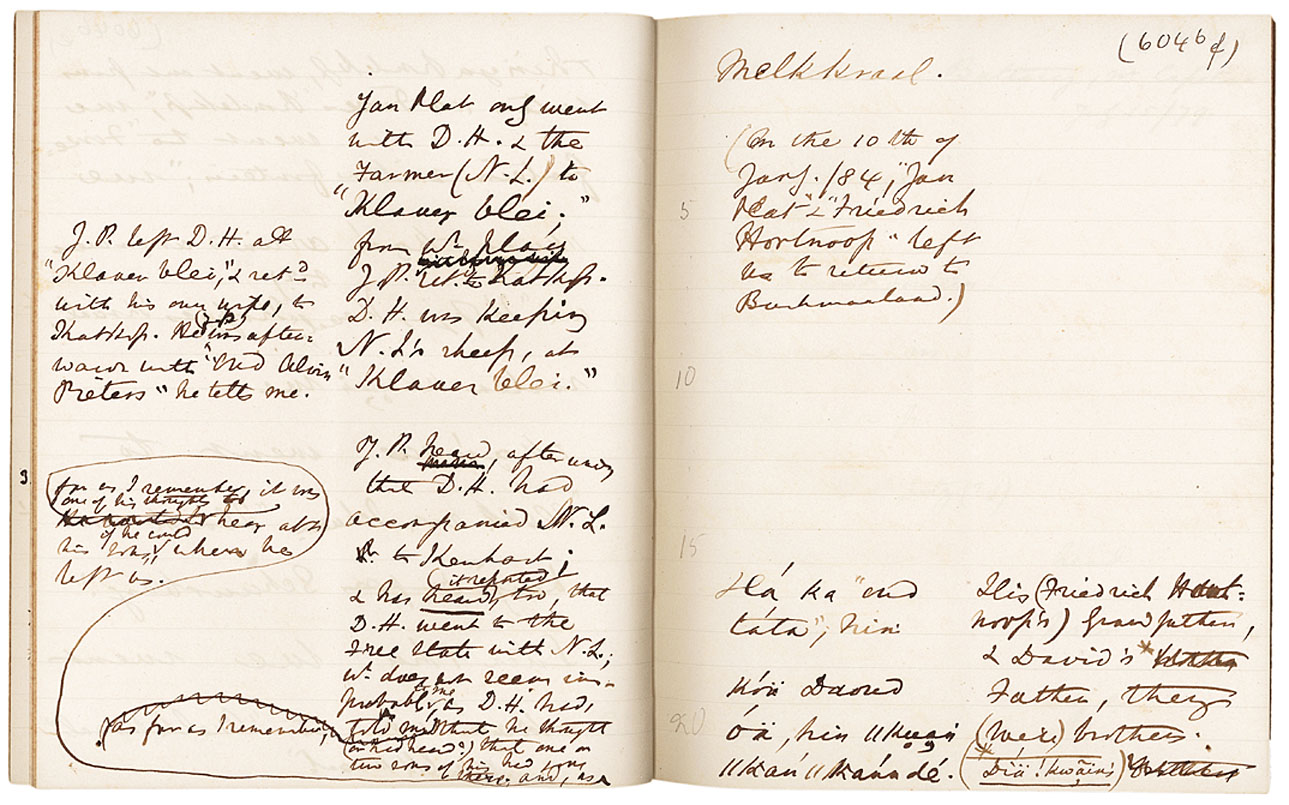 Jan Plat only went
with D.H. & the
Farmer (N.L.) to
"Klaver vlei,"
from wh. place
J.P. ret.d to Katkop.
D.H. was keeping
N.L's sheep, at
"Klaver vlei."
J.P. left D.H. at
"Klaver vlei," & ret.d
with his own wife, to
Katkop. He (J.P.) was after-
wards with "Oud
Pieters" he tells me.
J.P. heard, afterwards
that D.H. had
accompanied N.L.
to Kenhart;
& has heard (it reported) too, that
D.H. went to the
Free State with N.L.;
wh. does not seem im-
probable to me as D.H. had,
told me that he thought
(or had heard?) that one or
two sons of his had gone
there, and, as
(as far as I remember,
far as I remember, it was
one of his thoughts to
hear abt.
if he could
his sons, when he
left us.
9
(6046 ¢)
Melkkraal.
(On the 10th of
Jany. /84, "Jan
Plat" & "Friedrich
Hortnoop" left
us to return to
Bushmanland.)
5
10
15
20
Há ka "oud
táta", hin
kóä Daoud
óä, hin ǁkuaṅ
ǁkaṅ ǁkáṅn dé.
His (Friedrich Hort-
noop's) Grandfather,
& David's*
Father, they
(were) brothers.
(* Diä!kwãin's)